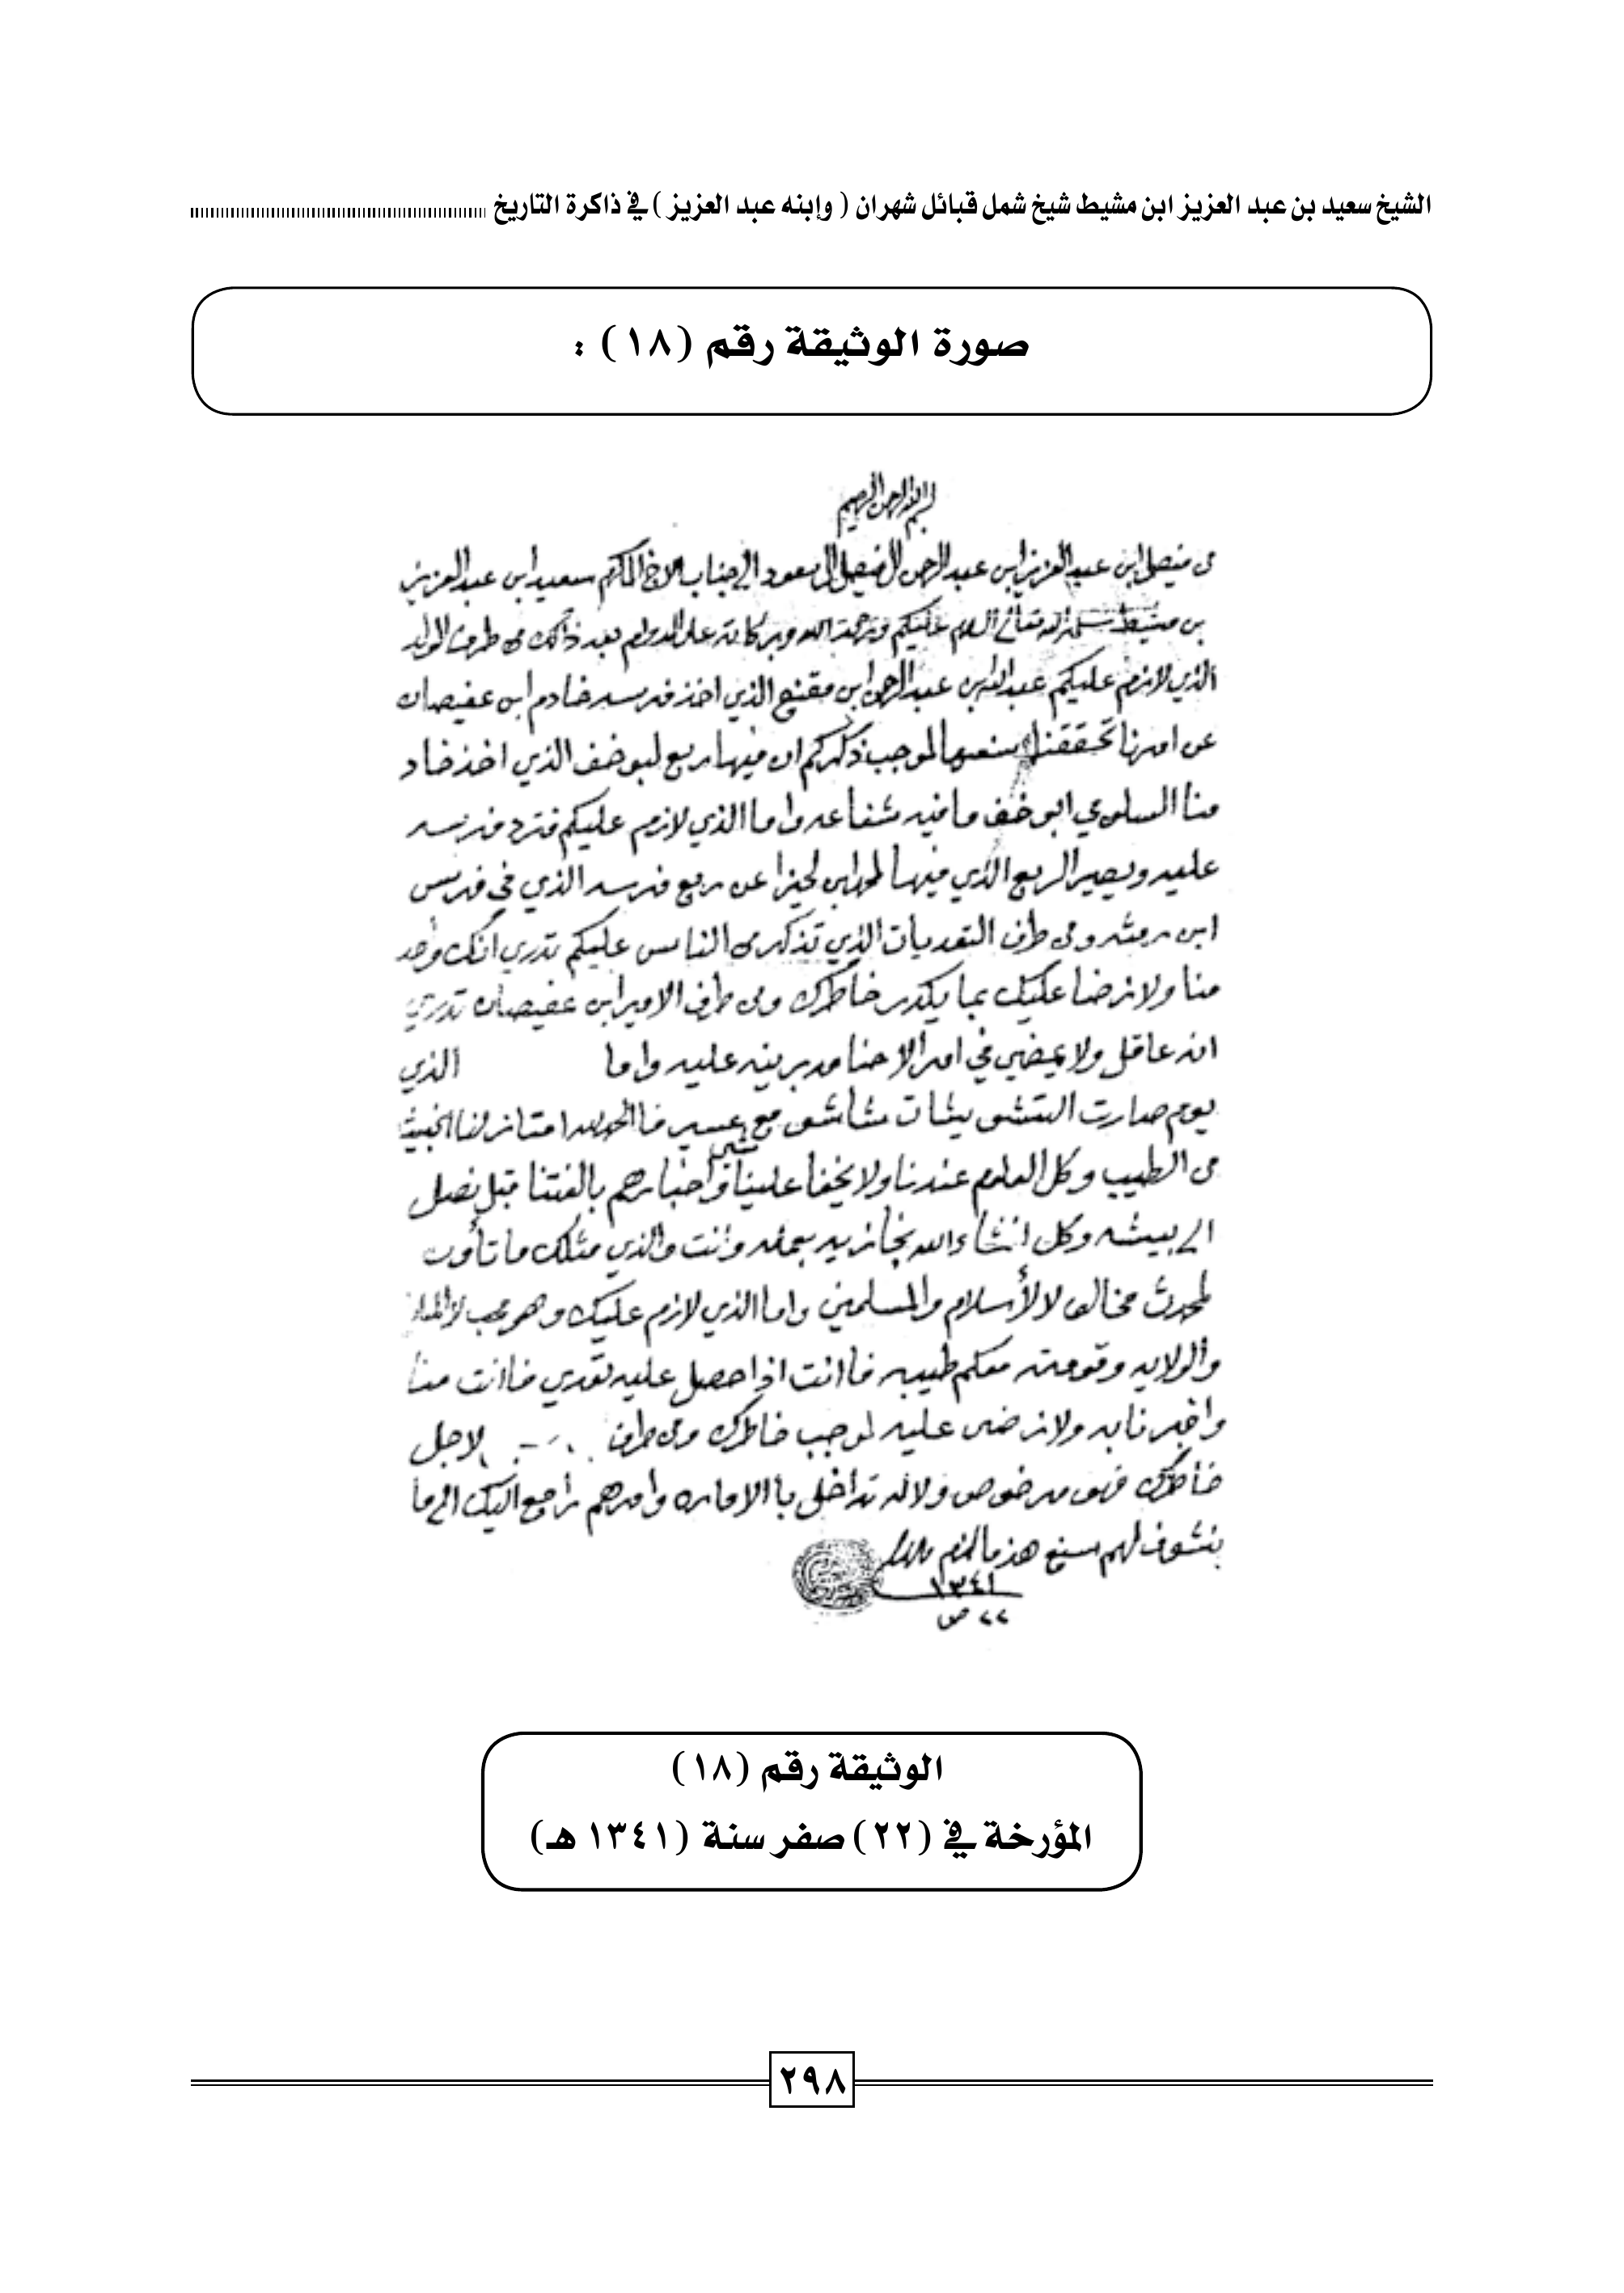 الشيخ سعيد بن عبد العزيز ابن مشيط شيخ شمل قبائل شهران ( وإبنه عبد العزيز ) في ذاكرة التاريخ
صورة الوثيقة رقم (١٨) :
بسم الله الرحمن الرحيم
من فيصل ابن عبد العزيز ابن عبد الرحمن ال فيصل ال سعود الى جناب الاخ المكرم سعيد ابن عبد العزيز
بن مشيط سلمه الله تعالى السلام عليكم ورحمة الله وبركاته على الدوام بعد ذالك من طرف الولد
الذي لازم عليكم عبد الله بن عبد الرحمن ابن مفتح الذي اخذ فرسه خادم ابن عفيصان
عن امرنا تحققنا لموجب ذكركم ان فيها ربع لبو خف الذي اخذ خاد
منا السلومي ابو خف ما فيه شفاعه واما الذي لازم عليكم فترد فرسه
عليه ويصير الربع الذي فيها عن ربع فرسه الذي في فرس
ابن رمثه ومن طرف التعديات الذي تذكر من الناس عليكم تدري انك واحد
منا ولا نرضا عليك بما يكدر خاطرك ومن طرف الامير ابن عفيصان تدري
انه عاقل ولا يمضي في امر الا حنا مدبرينه عليه واما الذي
يوم صارت مع عسير فالحمد لله امتاز لنا الخبيث
من الطيب وكل العلوم عندنا ولا يخفا علينا شي واخبارهم بالفتنا قبل نصل
الى بيشه وكل انشاء الله نجازيه بعمله وانت والذي مثلك ما تأوون
لمحدث مخالف لالأسلام والمسلمين واما الذي لازم عليك وهو محب
والولايه وقومته معكم طيبه فاانت اذا حصل عليه تعدي فاانت منا
واخبرنا به ولا نرضى عليه لموجب خاطرك ومن طرف لاجل
خاطرك فهو مرخوص ولاله تداخل بأالاماره وامرهم راجع اليك الى ما
نشوف لهم سنع هذا ما لزم والسلام
١٣٤١
٢٢ ص
الوثيقة رقم (١٨)
المؤرخة في (٢٢) صفر سنة (١٣٤١ هـ)
٢٩٨